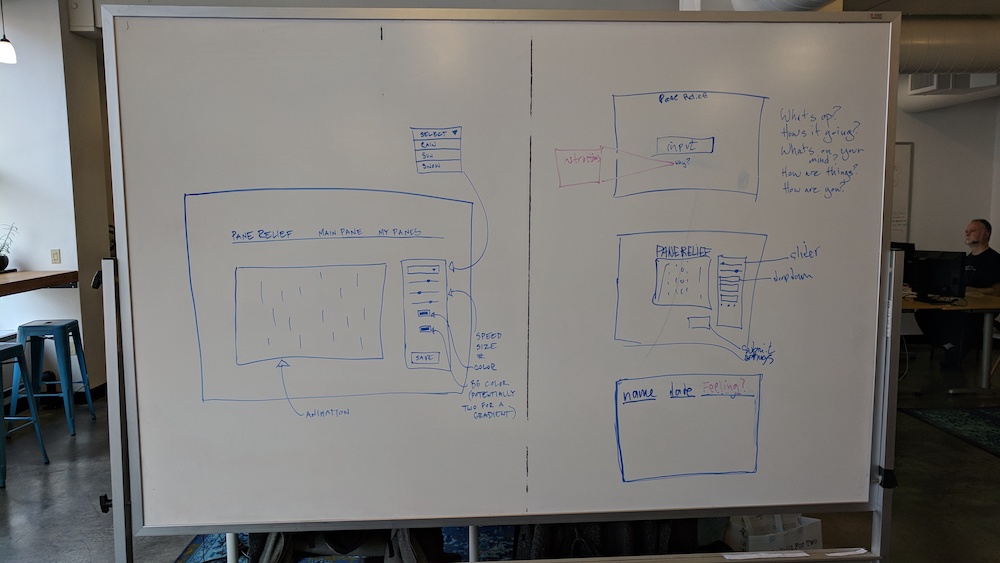 SELECT
RAIN
SUN
SNOW
PANE RELIEF MAIN PANE MY PANES
SAVE
SPEED
SIZE
COLOR
BG COLOR
(POTENTIALLY
TWO FOR A
GRADIENT)
ANIMATION
Pane Relief
input
why?
What's up?
How's it going?
What's on your
mind?
How are things?
How are you?
PANE RELIEF
slider
dropdown
submit
settings
name date Feeling?